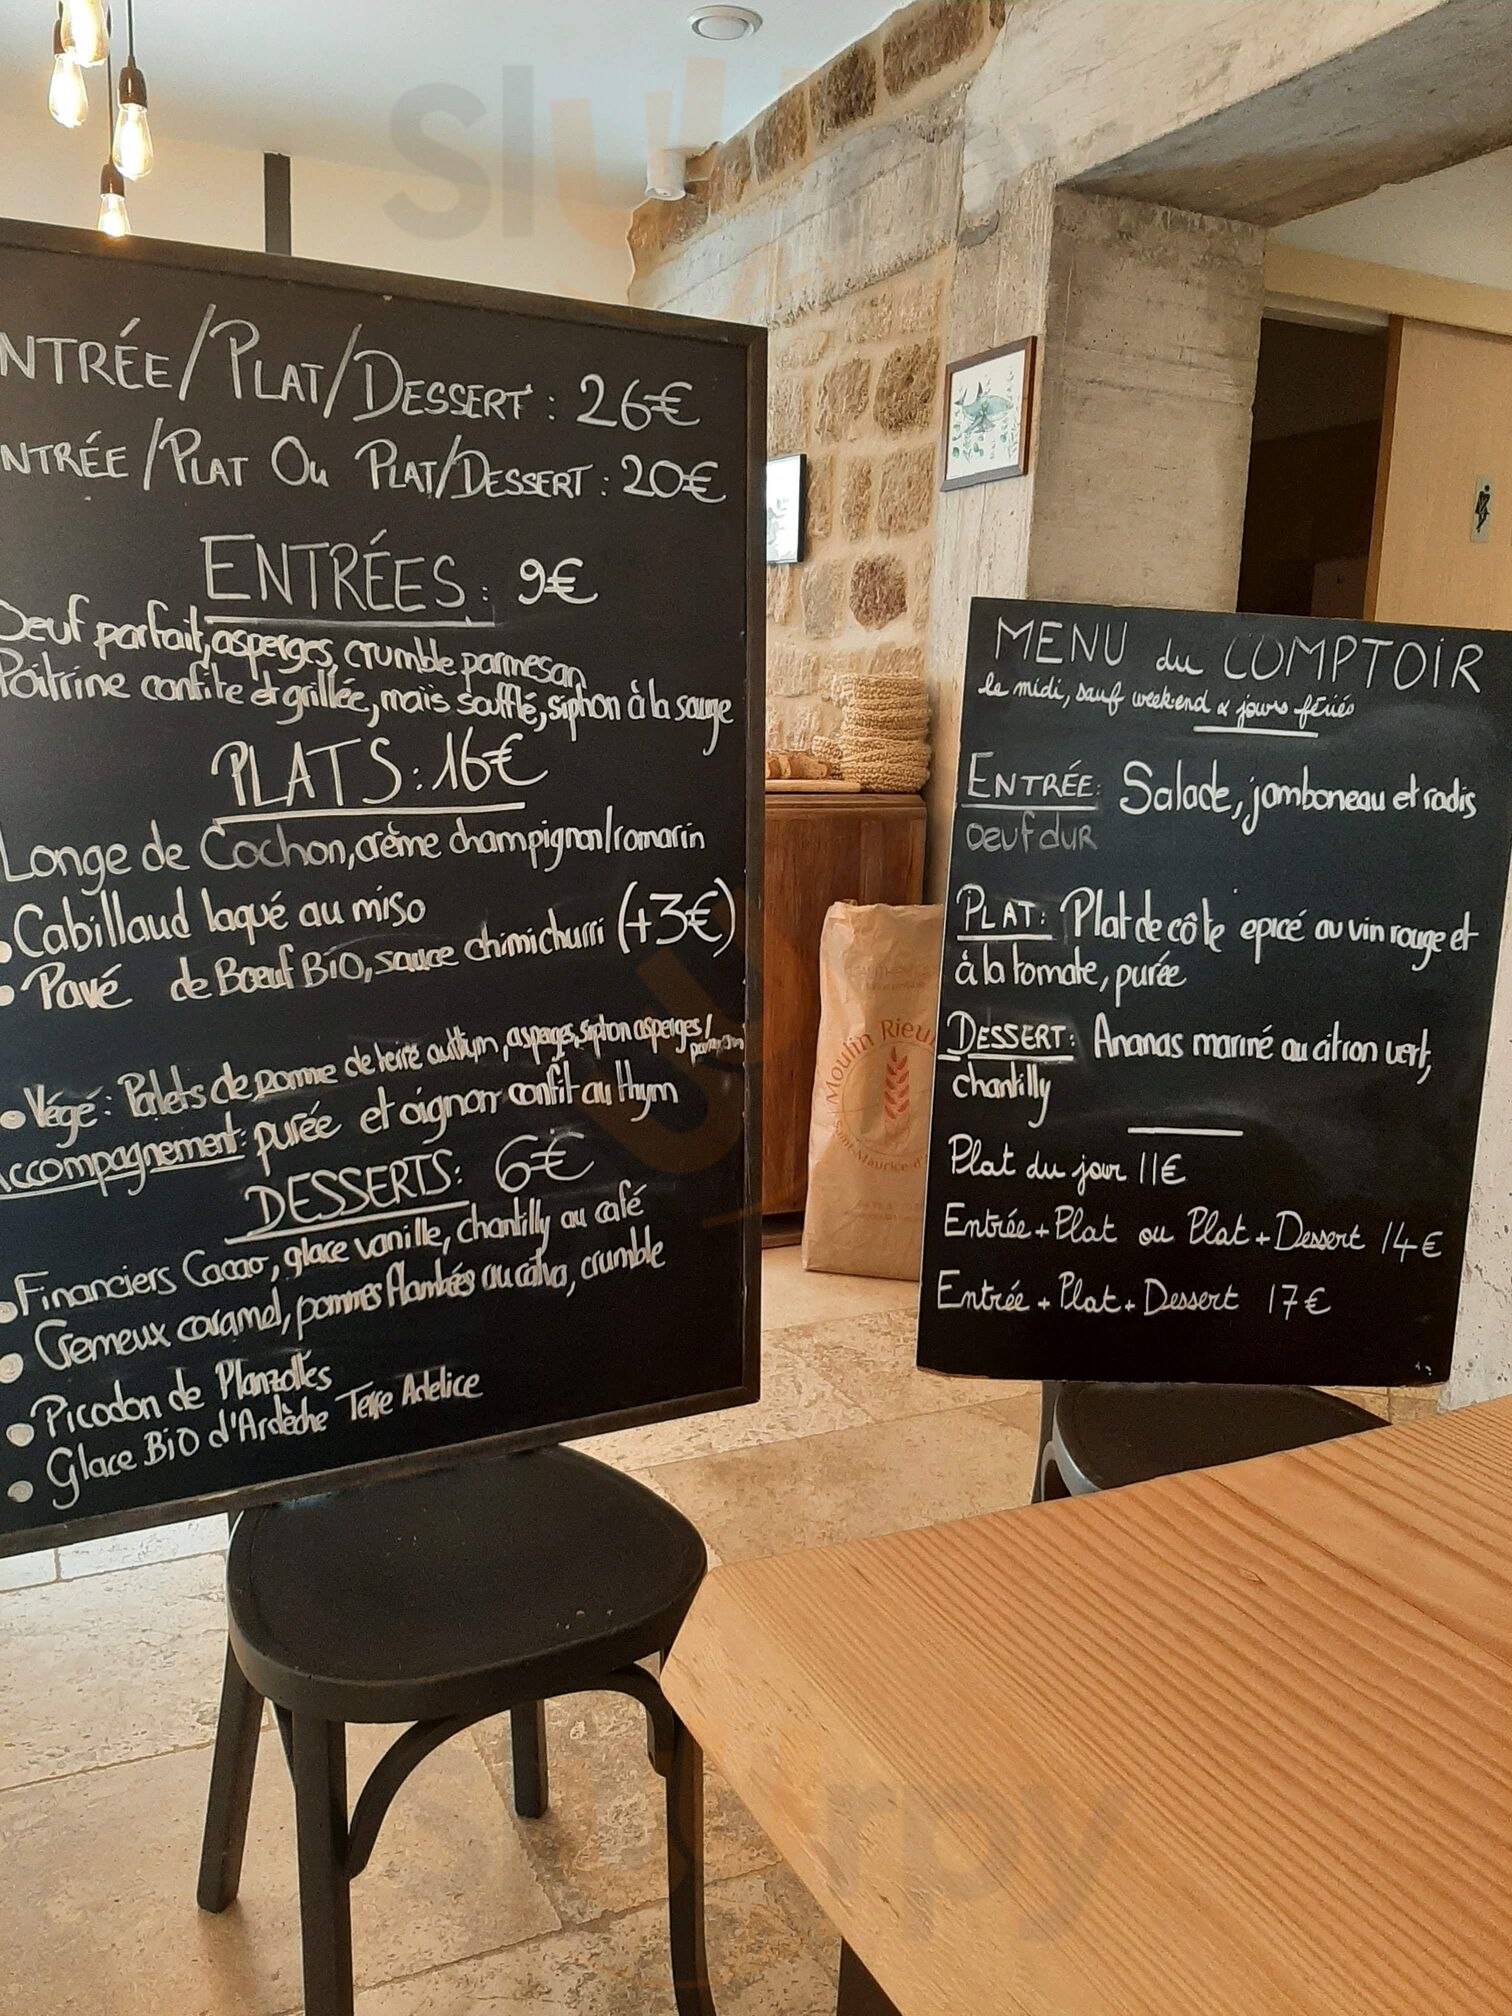 NTRÉE/PLAT/DESSERT : 26€
NTRÉE/PLAT Ou PLAT/DESSERT : 20€
ENTRÉES : 9€
Oeuf parfait, asperges, crumble parmesan
Poitrine confite et grillée, maïs soufflé, siphon à la sauge
PLATS : 16€
Longe de Cochon, crème champignon/romarin
Cabillaud laqué au miso
Pavé de Boeuf BiO, sauce chimichurri (+3€)
Végé : Palets de pomme de terre, asperges, siphon asperges/
Accompagnement : purée et oignon confit au thym
DESSERTS : 6€
Financiers Cacao, glace vanille, chantilly au café
Crémeux caramel, pommes flambées au calva, crumble
Picodon de Planzolles
Glace BiO d'Ardèche Terre Adelice
MENU du COMPTOIR
le midi, sauf week-end & jours fériés
ENTRÉE : Salade, jamboneau et radis
oeuf dur
PLAT : Plat de côte epicé au vin rouge et
à la tomate, purée
DESSERT : Ananas mariné au citron vert,
chantilly
Plat du jour 11€
Entrée + Plat ou Plat + Dessert 14€
Entrée + Plat + Dessert 17€
Moulin Rieu
Saint-Maurice-d'
slurpy
slurpy